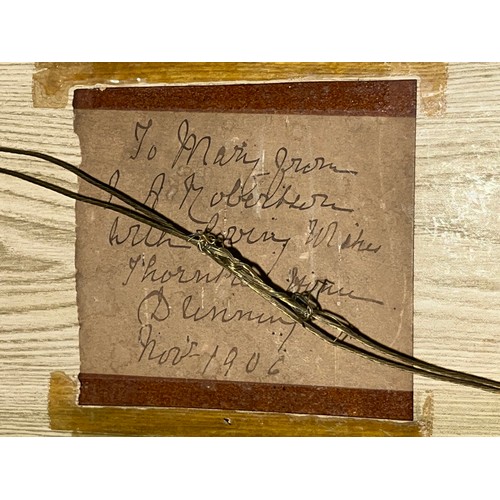 To Mary from
Robertson
With Loving Wishes
Home
Dunning
Nov 1906